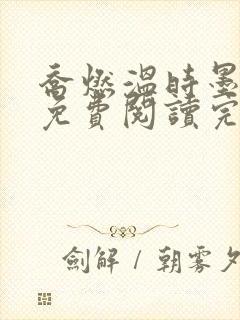 喬燃溫時墨
免費閱讀完
劍解 / 朝霧夕